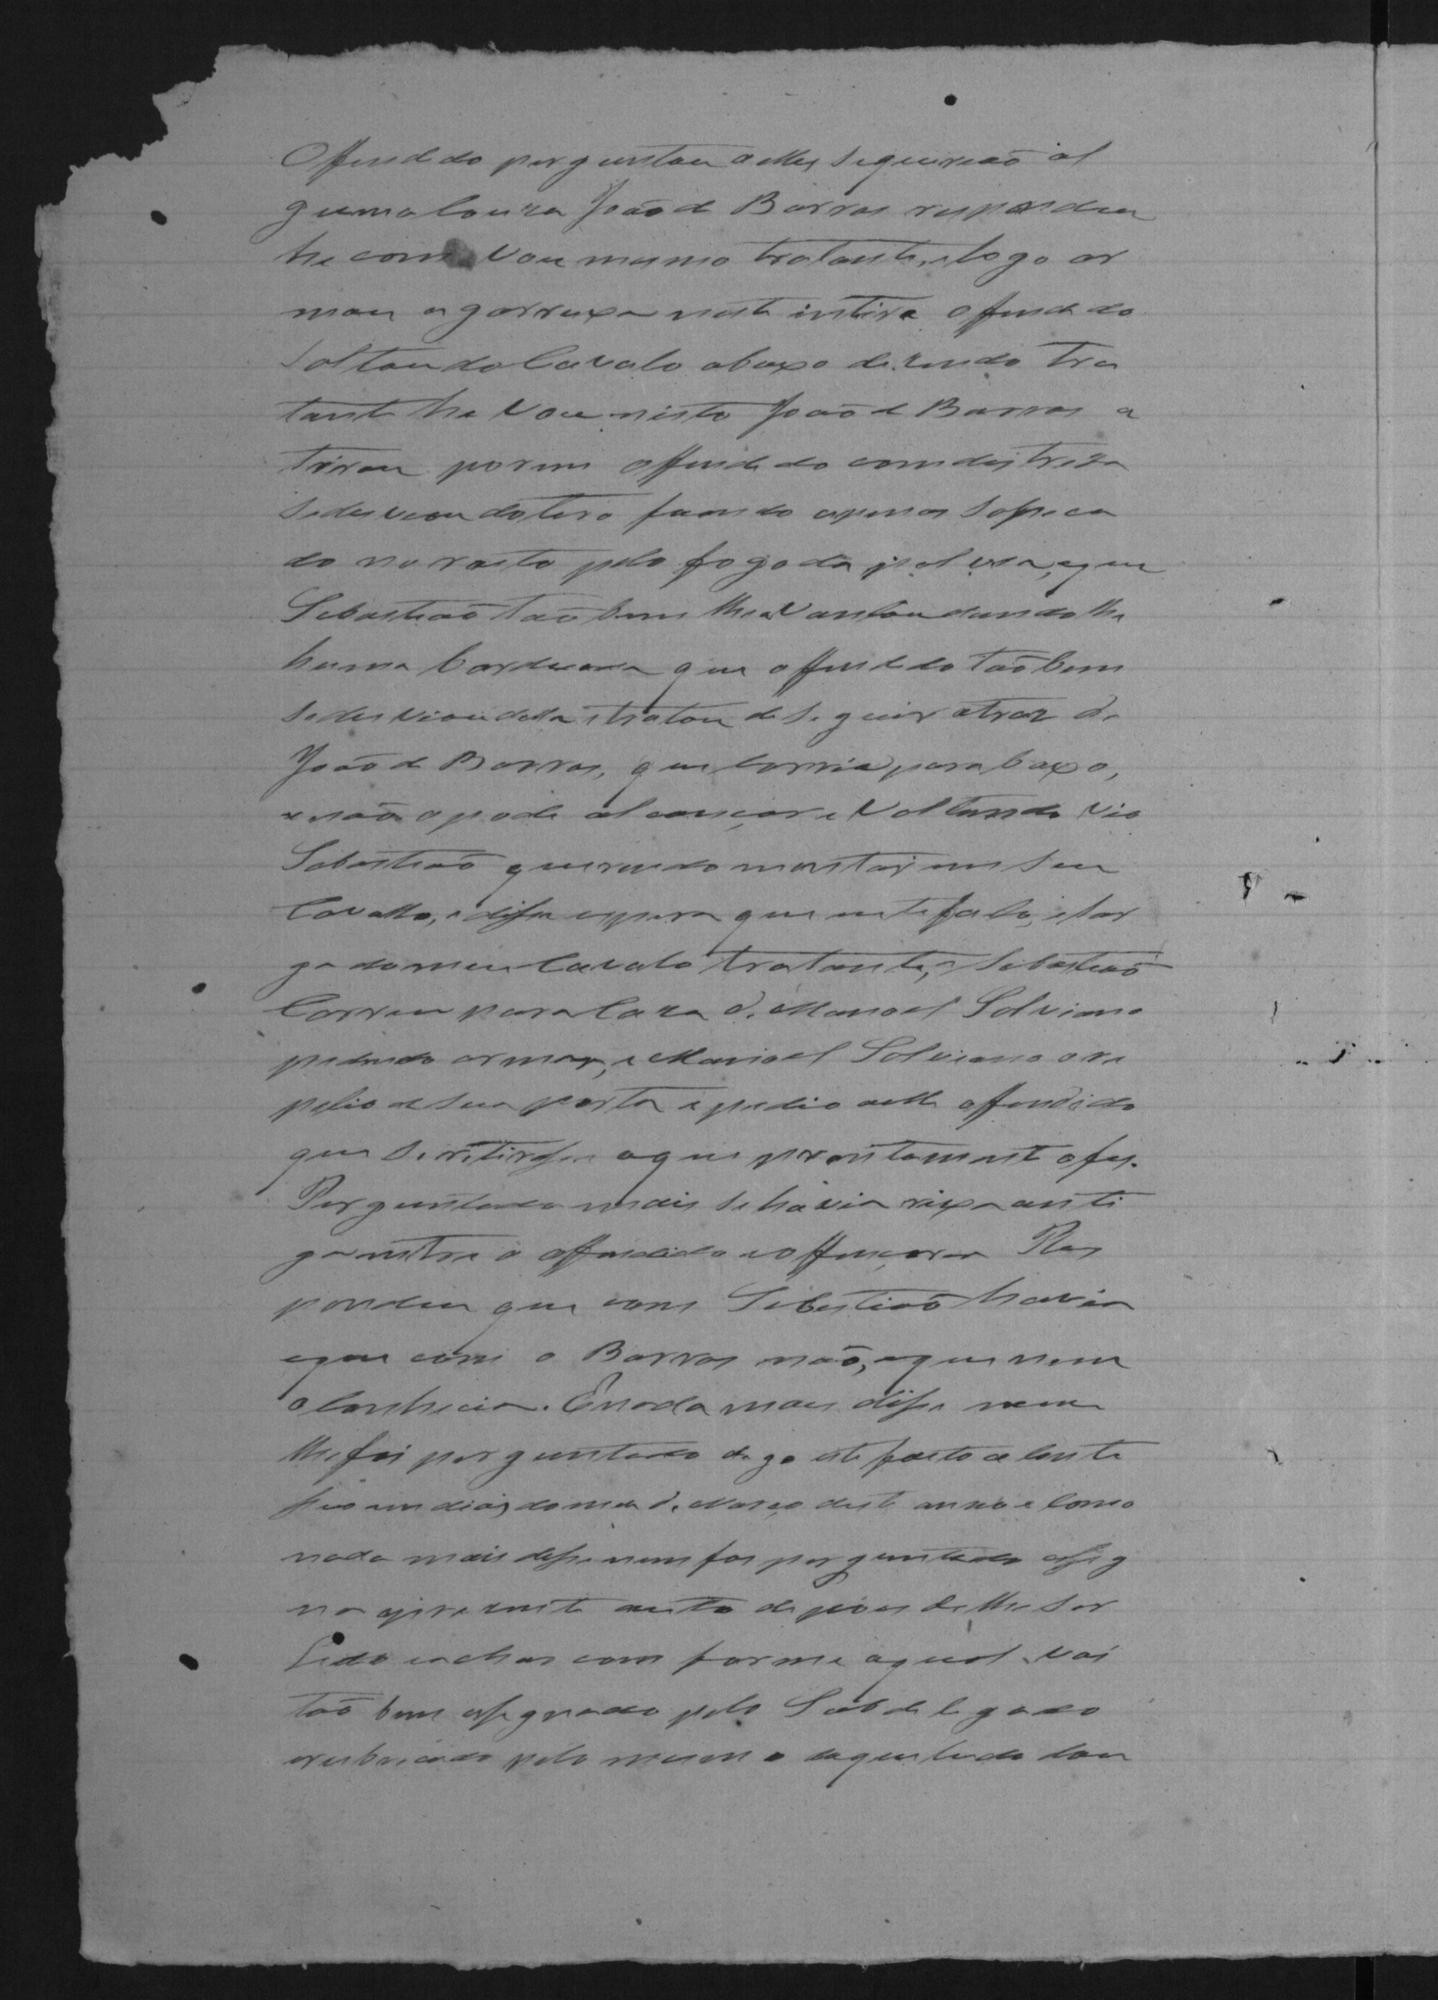 Offendido perguntou a elles se queriaõ al
guma couza João de Barros respondeu
he com Voce mesmo tratante, e logo ar
mou a garruxa nesta intira offendido
Soltou do Cavalo abaxo dizendo tra
tante he Voce nisto João de Barros a
tirou porem offendido com destreza
se desviou do tiro ficando apenas Sapeca
do no rosto pelo fogo da polvra, e que
Sebastiaõ taõ bem lhe avansou dando lhe
huma borduada que offendido taõ bem
se desviou della e tratou de seguir atraz de
João de Barros, que corria para baxo,
e naõ o pode alcançar e Voltando vio
Sebastiaõ querendo montar em seu
Cavallo, e disse espera que eu te falo, e lar
ga do meu Cavalo tratante, e Sebastiaõ
Correu para Caza de Manoel Salviano
pedindo armas, e Manoel Salviano o re
pelio de sua porta e pedio a elle offendido
que se retirasse o que prontamente o fes.
Perguntado mais se havia rixa anti
ga entre o offendido e offençores Res
pondeu que com Sebastiaõ havia
e que com o Barros não, e que nem
o Conhecia. E nada mais disse nem
lhe foi perguntado digo este facto a conte
seo em dias do mes de Março deste anno e Como
nada mais disse nem foi perguntado assig
na o presente auto depois de lhe ser
Lido e achar com forme o qual vai
taõ bem assignado pelo Subdelegado
e rubricado pelo mesmo do que tudo dou